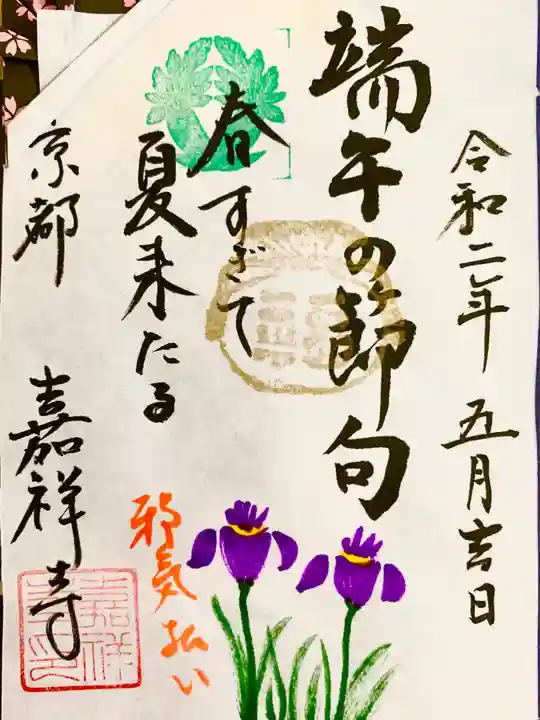 令和二年 五月吉日
端午の節句
春すぎて
夏来たる
邪気払い
京都 嘉祥寺
嘉祥
寺印